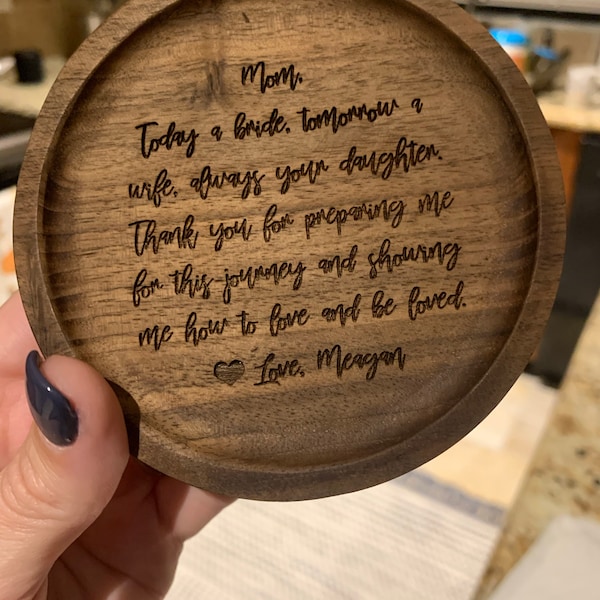 Mom,
Today a bride, tomorrow a
wife, always your daughter.
Thank you for preparing me
for this journey and showing
me how to love and be loved.
Love, Meagan